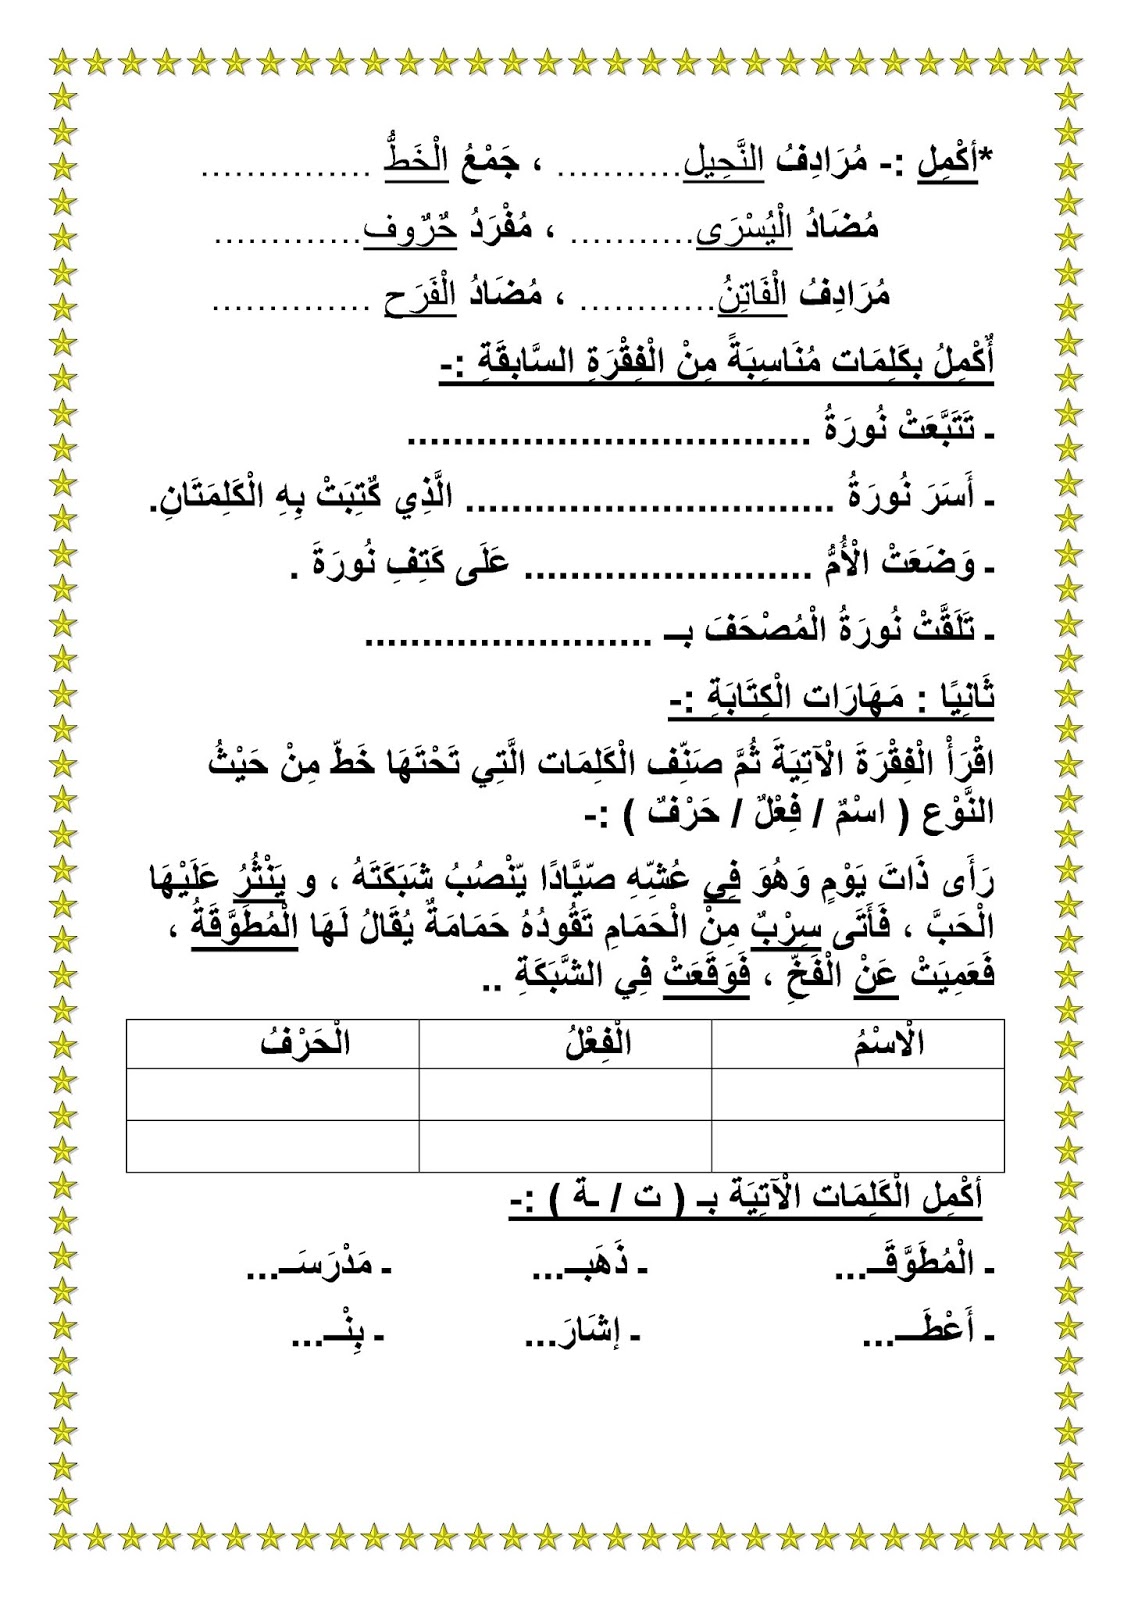 *أكْمِل :- مُرَادِفُ النَّحِيل........... ، جَمْعُ الْخَطُّ ...............
مُضَادُ الْيُسْرَى............ ، مُفْرَدُ حٌرٌوف.............
مُرَادِفُ الْفَاتِنُ............ ، مُضَادُ الْفَرَح ..............
أٌكْمِلُ بِكَلِمَات مُنَاسِبَةً مِنْ الْفِقْرَةِ السَّابِقَةِ :-
ـ تَتَبَّعَتْ نُورَةُ ...................................
ـ أَسَرَ نُورَةُ ................................ الَّذِي كٌتِبَتْ بِهِ الْكَلِمَتَانِ.
ـ وَضَعَتْ الْأُمُّ ......................... عَلَى كَتِفِ نُورَةَ .
ـ تَلَقَّتْ نُورَةُ الْمُصْحَفَ بــ .........................
ثَانِيًا : مَهَارَات الْكِتَابَةِ :-
اقْرَأْ الْفِقْرَةَ الْآتِيَةَ ثُمَّ صَنِّف الْكَلِمَات الَّتِي تَحْتَهَا خَطّ مِنْ حَيْثُ
النَّوْع ( اسْمٌ / فِعْلٌ / حَرْفٌ ) :-
رَأَى ذَاتَ يَوْمٍ وَهُوَ فِي عُشِّهِ صّيَّادًا يّنْصُبُ شَبَكَتَهُ ، و يَنْثُرُ عَلَيْهَا
الْحَبَّ ، فَأَتَى سِرْبٌ مِنْ الْحَمَامِ تَقُودُهُ حَمَامَةٌ يُقَالُ لَهَا الْمُطَوَّقَةُ ،
فَعَمِيَتْ عَنْ الْفَخِّ ، فَوَقَعَتْ فِي الشَّبَكَةِ ..
الْاسْمُ الْفِعْلُ الْحَرْفُ
أكْمِل الْكَلِمَات الْآتِيَة بـ ( ت / ـة ) :-
ـ الْمُطَوَّقَــ... ـ ذَهَبــ... ـ مَدْرَسَــ...
ـ أَعْطَــ... ـ إشَارَ... ـ بِنْــ...